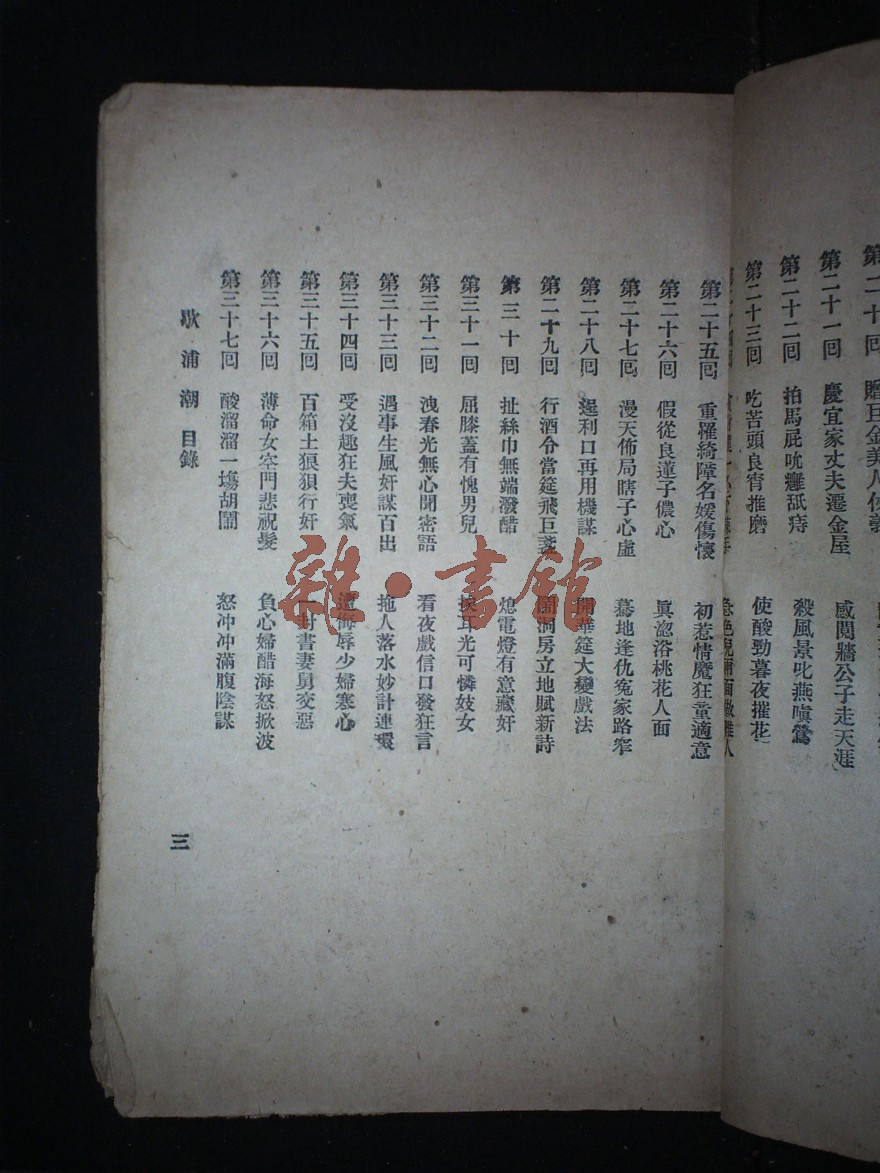 第二十一回　慶宜家丈夫遷金屋　感鬩牆公子走天涯
第二十二回　拍馬屁吮癰舐痔　殺風景叱燕嗔鶯
第二十三回　吃苦頭良宵推磨　使酸勁暮夜摧花
第二十五回　重羅綺障名媛傷懷　初惹情魔狂童適意
第二十六回　假從良蓮子儂心　眞浴桃花人面
第二十七回　漫天佈局瞎子心虛　驀地逢仇冤家路窄
第二十八回　逞利口再用機謀　開華筵大變戲法
第二十九回　行酒令當筵飛巨盞　鬧洞房立地賦新詩
第三十回　扯絲巾無端潑醋　熄電燈有意藏奸
第三十一回　屈膝蓋有愧男兒　挨耳光可憐妓女
第三十二回　洩春光無心聞密語　看夜戲信口發狂言
第三十三回　遇事生風奸謀百出　拖人落水妙計連環
第三十四回　受沒趣狂夫喪氣　遭侮辱少婦寒心
第三十五回　百箱土狼狽行奸　一封書妻舅交惡
第三十六回　薄命女空門悲祝髮　負心婦醋海怒掀波
第三十七回　酸溜溜一塲胡鬧　怒冲冲滿腹陰謀
歇浦潮　目錄
三
雜·書館